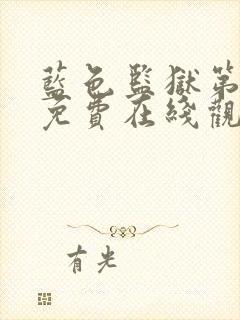 藍色監獄第
免費在綫觀
有光